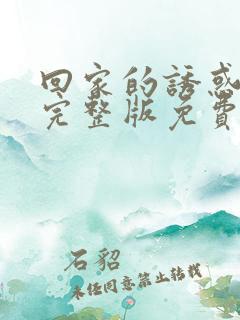 回家的誘惑
完整版免費
石貂
未经同意禁止转载